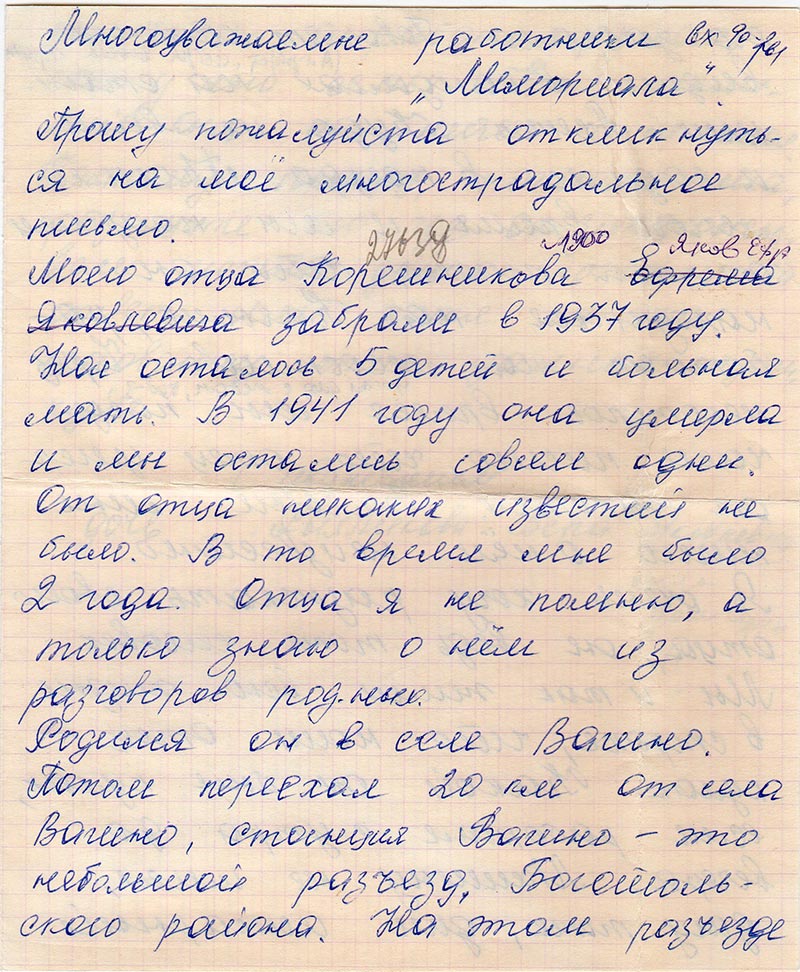 Многоуважаемые работники вх 90-
„Мемориала“.
Прошу пожалуйста откликнуть-
ся на моё многострадальное
письмо.
27639 1900 Яков Ефр
Моего отца Корешникова Ефрема
Яковлевича забрали в 1937 году.
Нас осталось 5 детей и больная
мать. В 1941 году она умерла
и мы остались совсем одни.
От отца никаких известий не
было. В то время мне было
2 года. Отца я не помню, а
только знаю о нём из
разговоров родных.
Родился он в селе Вагино.
Потом переехал 20 км от села
Вагино, станция Вагино – это
небольшой разъезд, Боготоль-
ского района. На этом разъезде